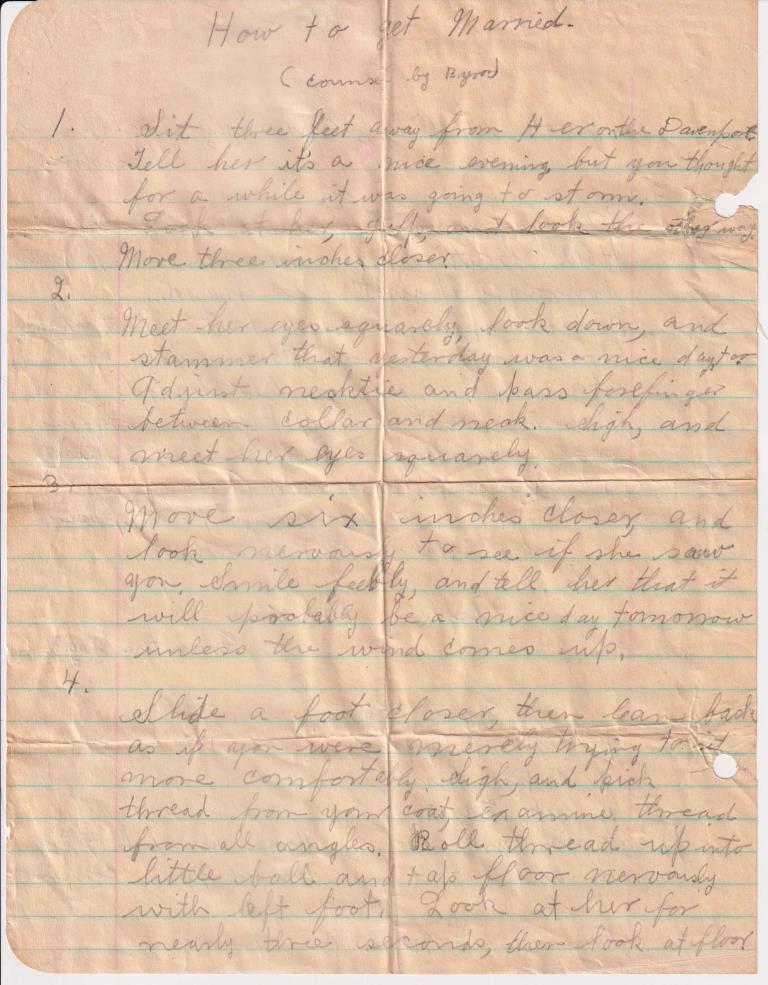 How to get Married.
(course by Byrod)
1. Sit three feet away from Her on the Davenport.
Tell her it's a nice evening, but you thought
for a while it was going to storm.
Look at her, gulp, and look the other way.
Move three inches closer.
2.
Meet her eyes squarely, look down, and
stammer that yesterday was a nice day too
Adjust necktie and pass forefinger
between collar and neck. Sigh, and
meet her eyes squarely.
3.
Move six inches closer, and
look nervously to see if she saw
you. Smile feebly, and tell her that it
will probably be a nice day tomorrow
unless the wind comes up.
4.
Slide a foot closer, then lean back
as if you were merely trying to sit
more comfortably. Sigh, and pick
thread from your coat, examine thread
from all angles. Roll thread up into
little ball and tap floor nervously
with left foot. Look at her for
nearly three seconds, then look at floor.